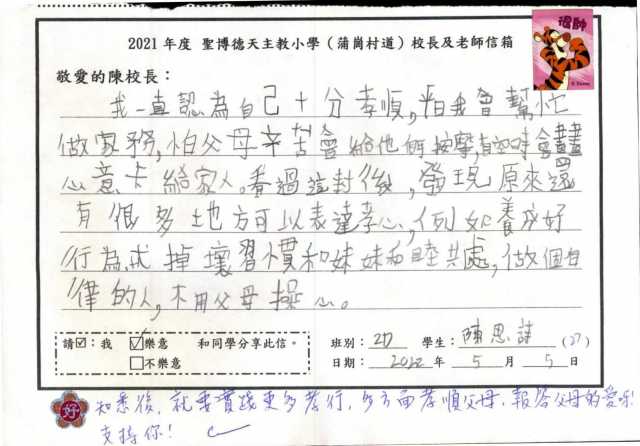 2021年度 聖博德天主教小學（蒲崗村道）校長及老師信箱
敬愛的陳校長：
我一直認為自己十分孝順，平日我會幫忙
做家務，怕父母辛苦會給他們按摩，有空時會畫
心意卡給家人。看過這封後，發現原來還
有很多地方可以表達孝心，例如養成好
行為，戒掉壞習慣和妹妹和睦共處，做個自
律的人，不用父母操心。
請☑：我 ☑樂意 和同學分享此信。
□不樂意
班別：2D 學生：陳思 (27)
日期：2022 年 5 月 5 日
好 知悉後，就要實踐更多孝行，多方面孝順父母，報答父母的愛呀！
支持你！